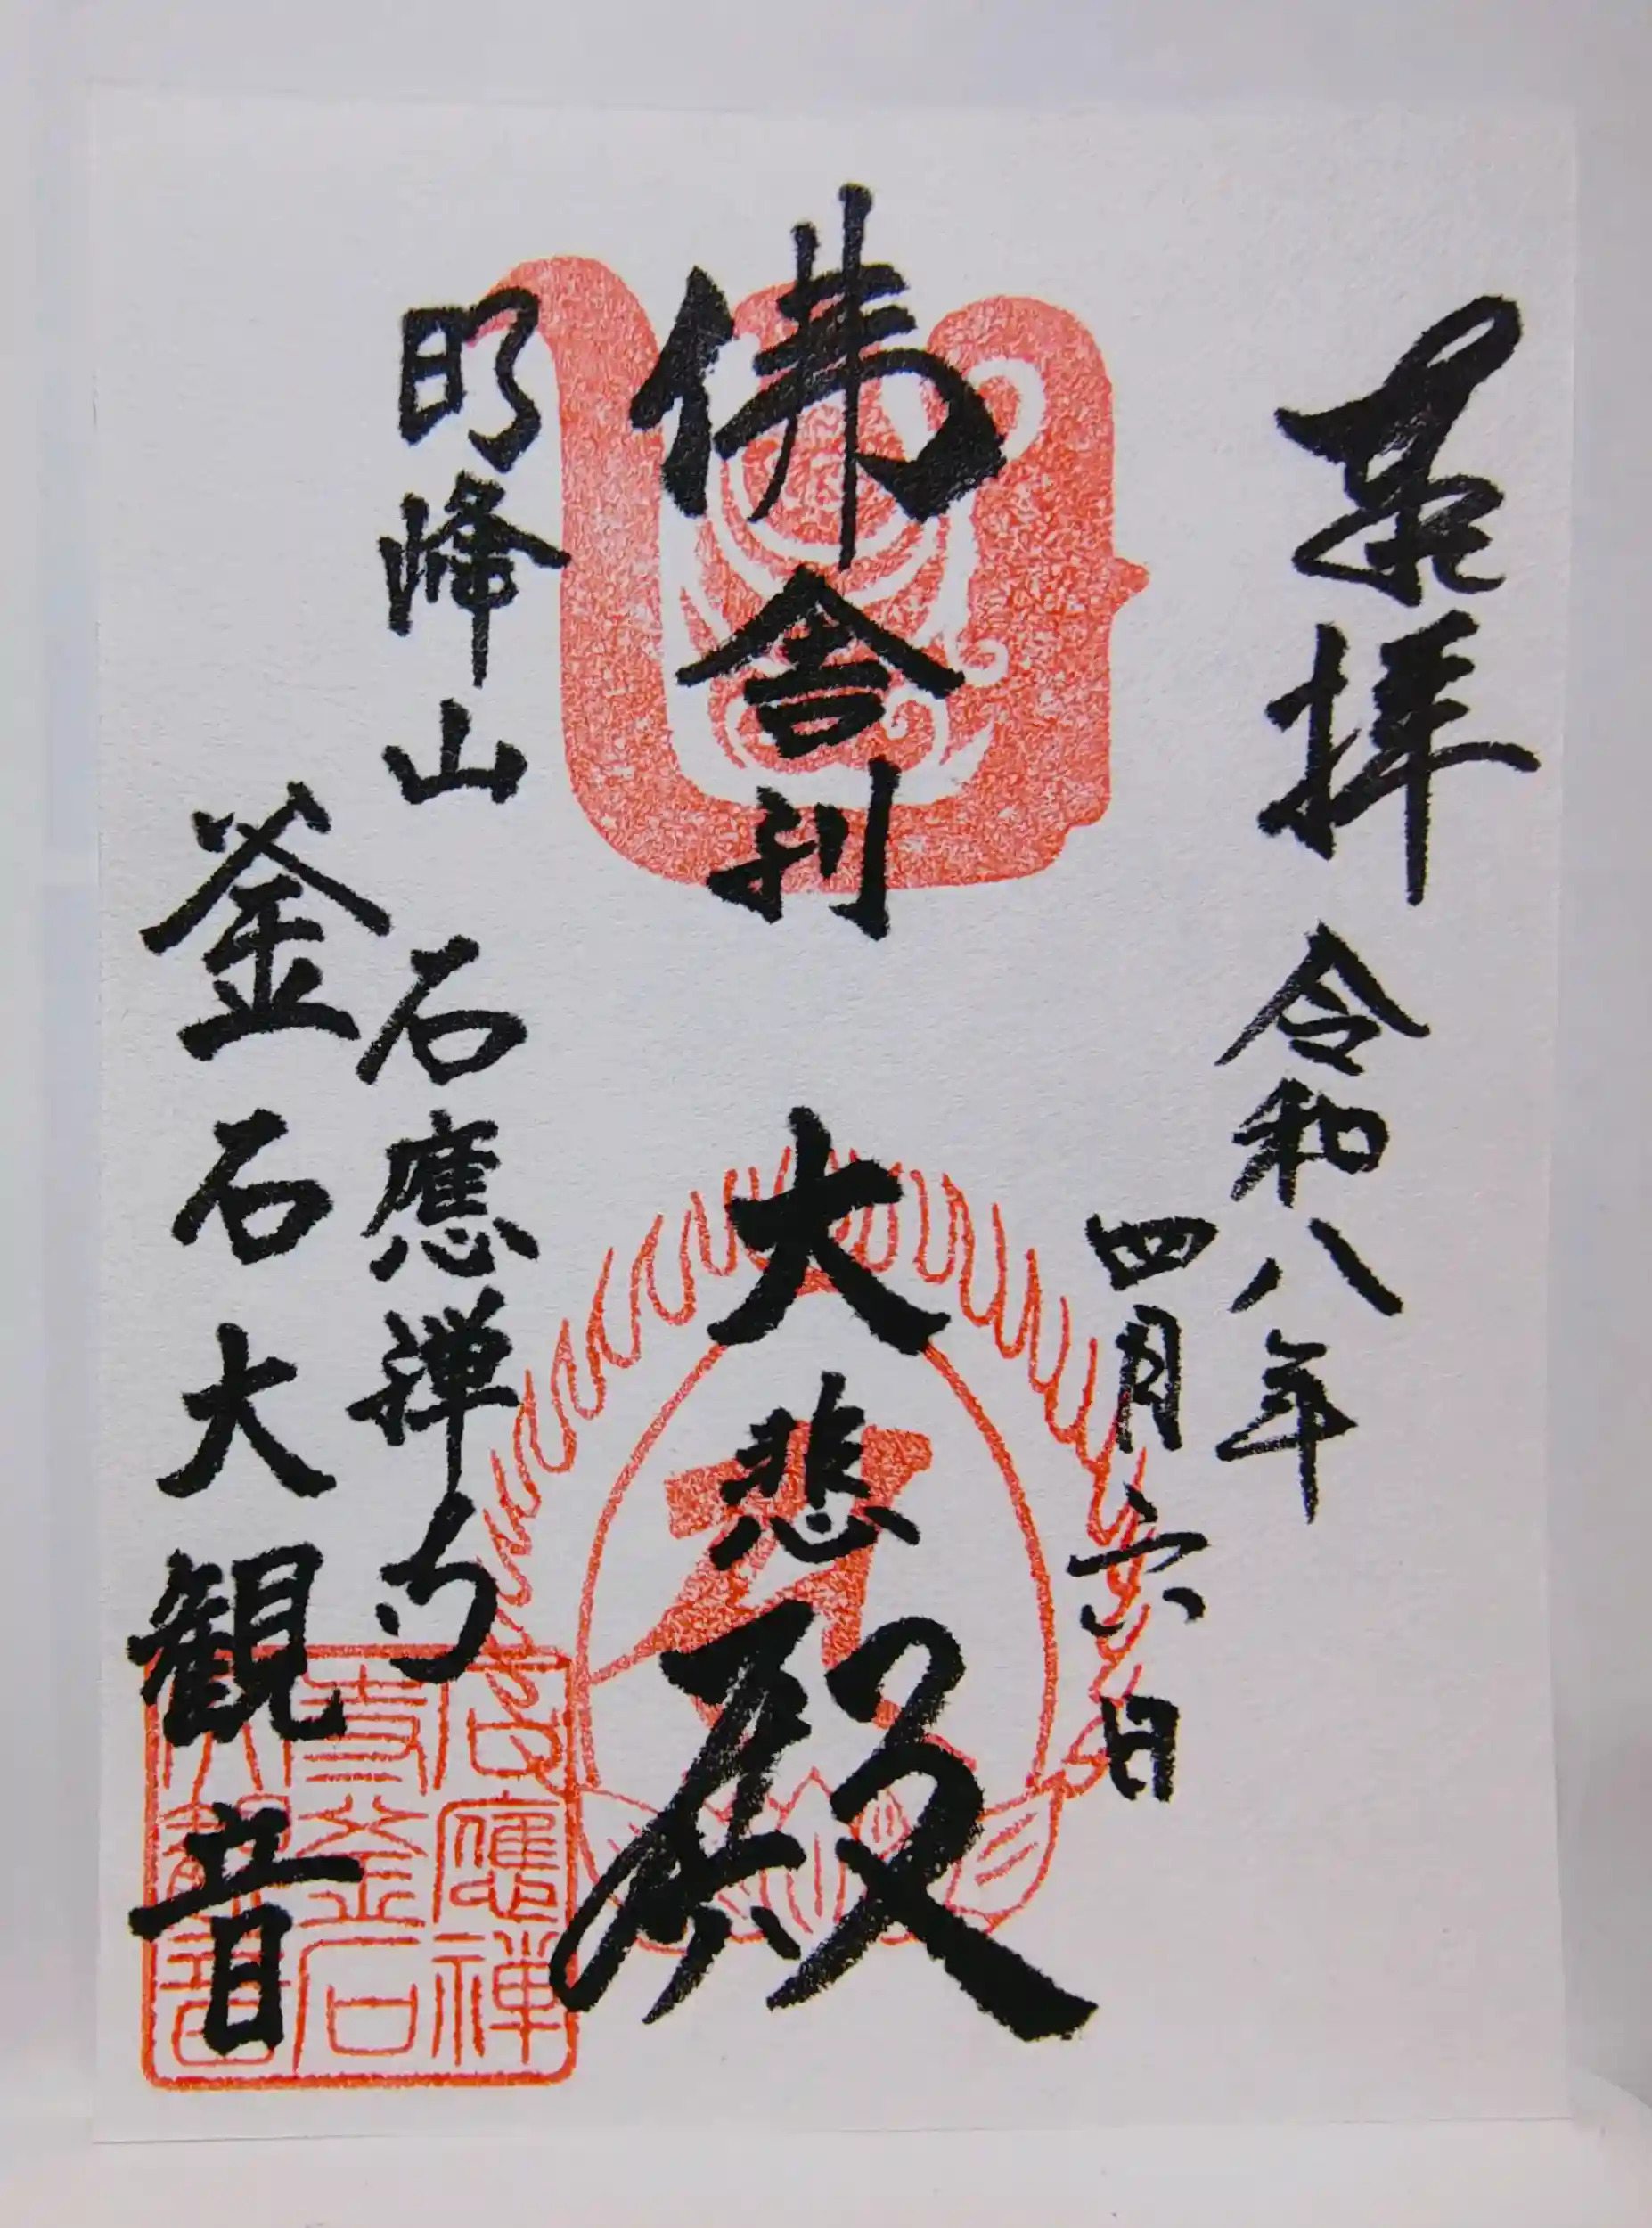 奉拝
令和八年
四月六日
佛舎利
大悲殿
明峰山
石應禅寺
釜石大観音
石應禅
寺釜石
大観音